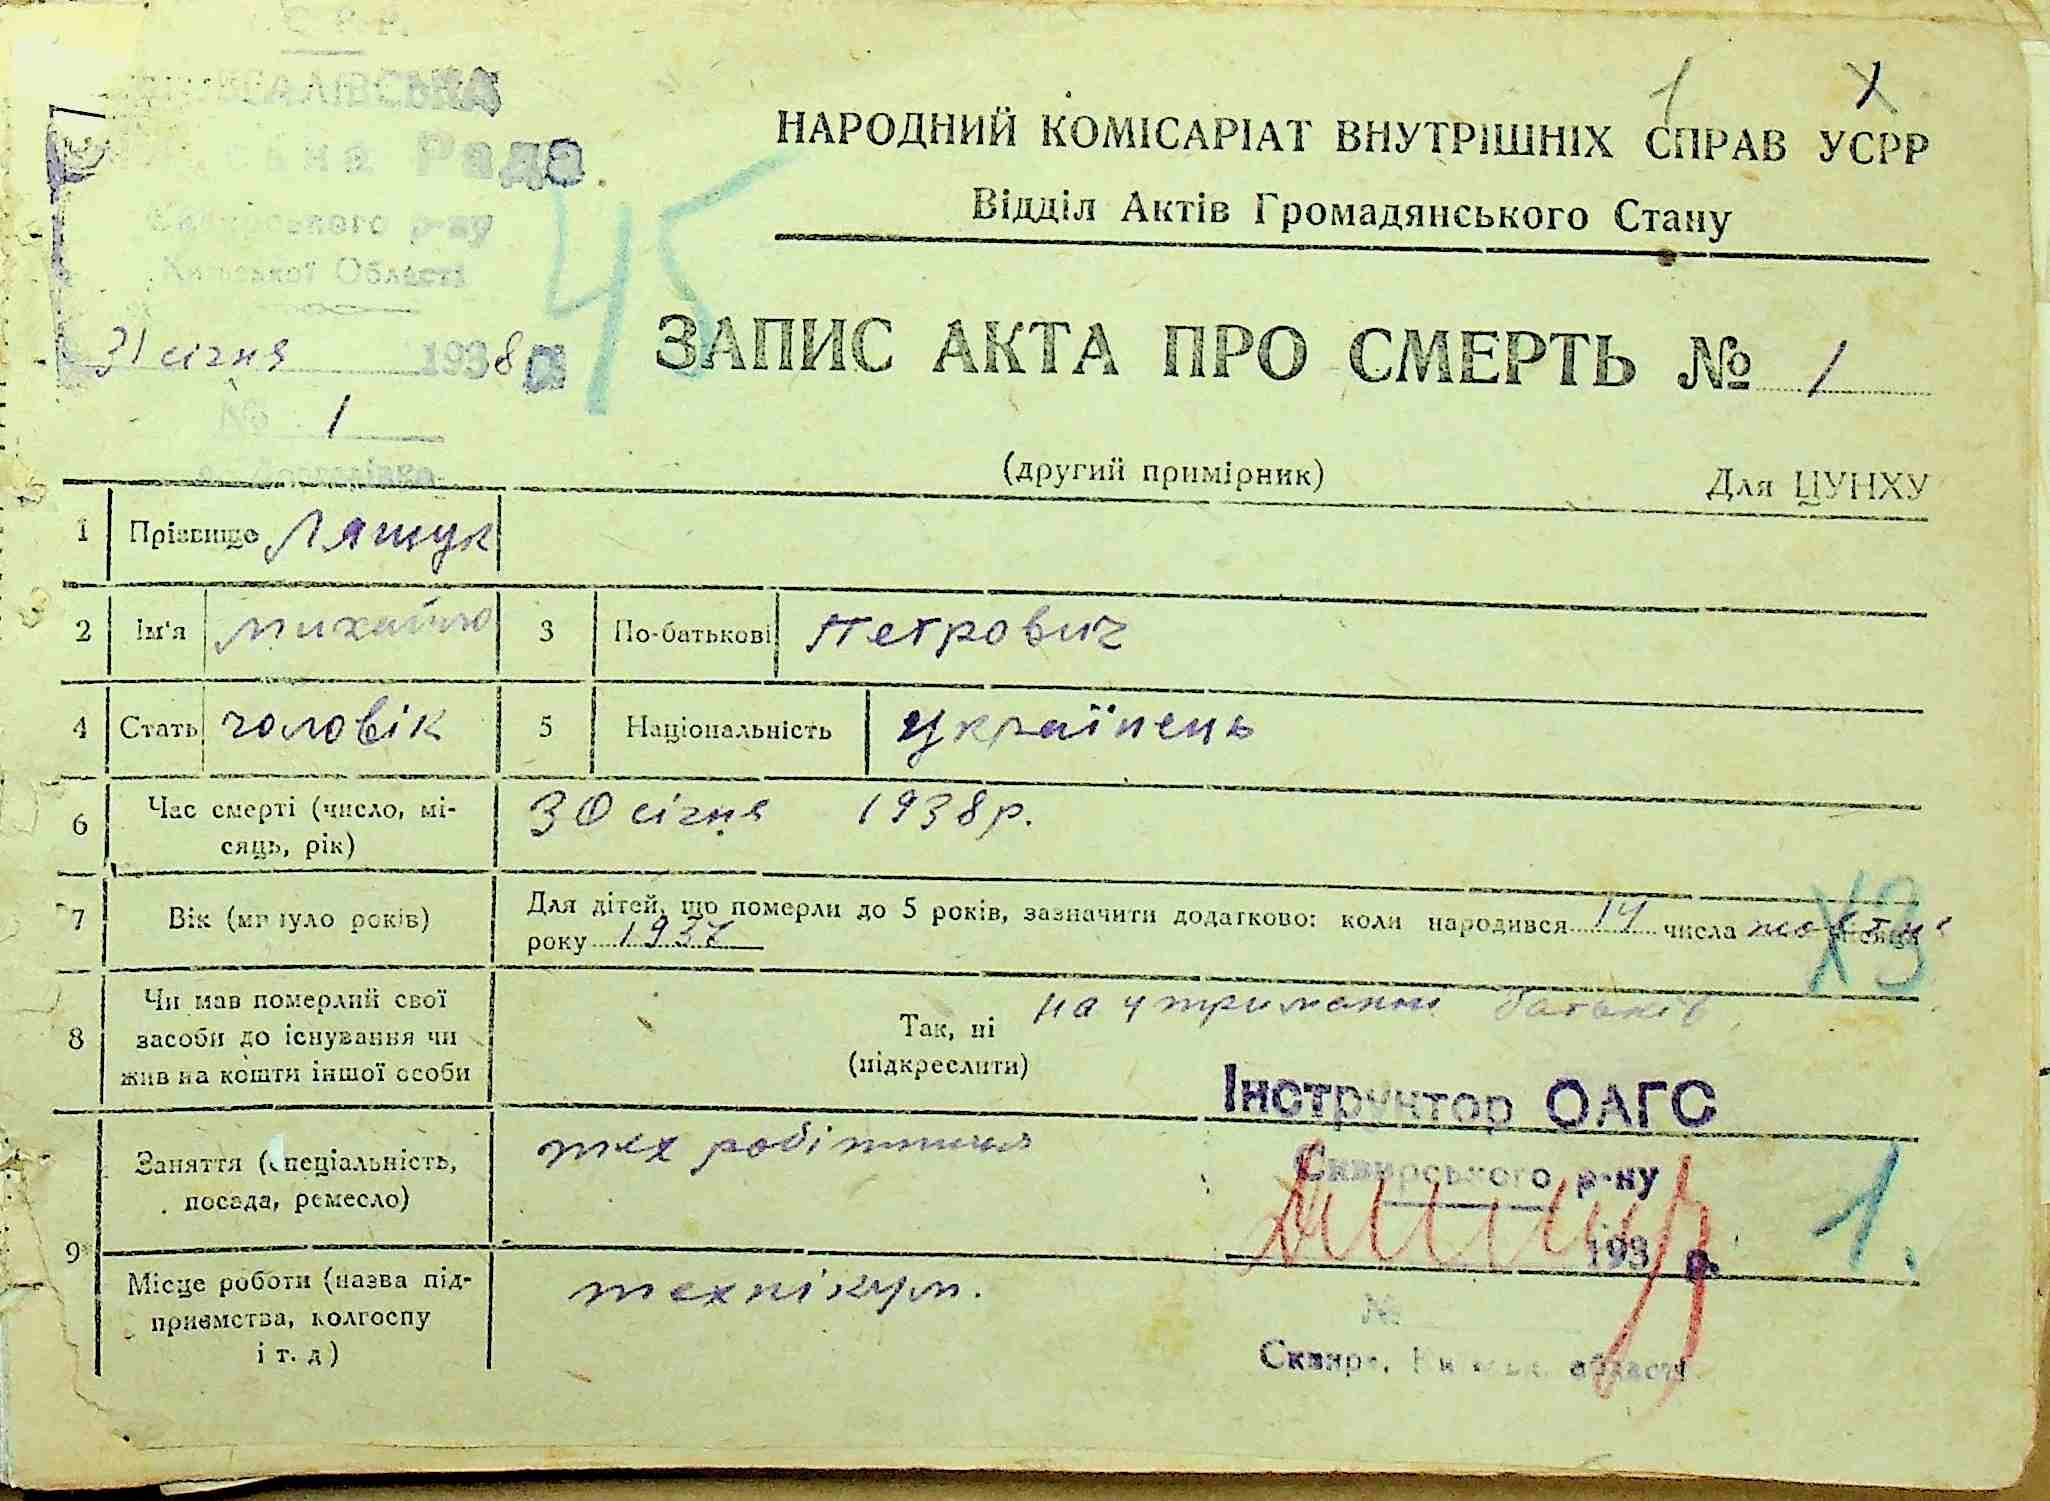 С Р Р
Рада
р-ну
Області
31 січня 1938 р
№ 1
45
1 Х
НАРОДНИЙ КОМІСАРІАТ ВНУТРІШНІХ СПРАВ УСРР
Відділ Актів Громадянського Стану
ЗАПИС АКТА ПРО СМЕРТЬ № 1
(другий примірник) Для ЦУНХУ
1 Прізвище Лящук
2 Ім'я михайло 3 По-батькові Петрович
4 Стать чоловік 5 Національність українець
6 Час смерті (число, мі-
сяць, рік) 30 січня 1938 р.
7 Вік (минуло років) Для дітей, що померли до 5 років, зазначити додатково: коли народився 14 числа жовтня місяця
року 1937
Х3
8 Чи мав померлий свої
засоби до існування чи
жив на кошти іншої особи
Так, ні на утриманні батьків
(підкреслити)
9 Заняття (спеціальність,
посада, ремесло) тех робітниця
Місце роботи (назва під-
приємства, колгоспу
і т. д) технікум.
Інструктор ОАГС
Сквирського р-ну
193 р.
1.
№
Сквира, області